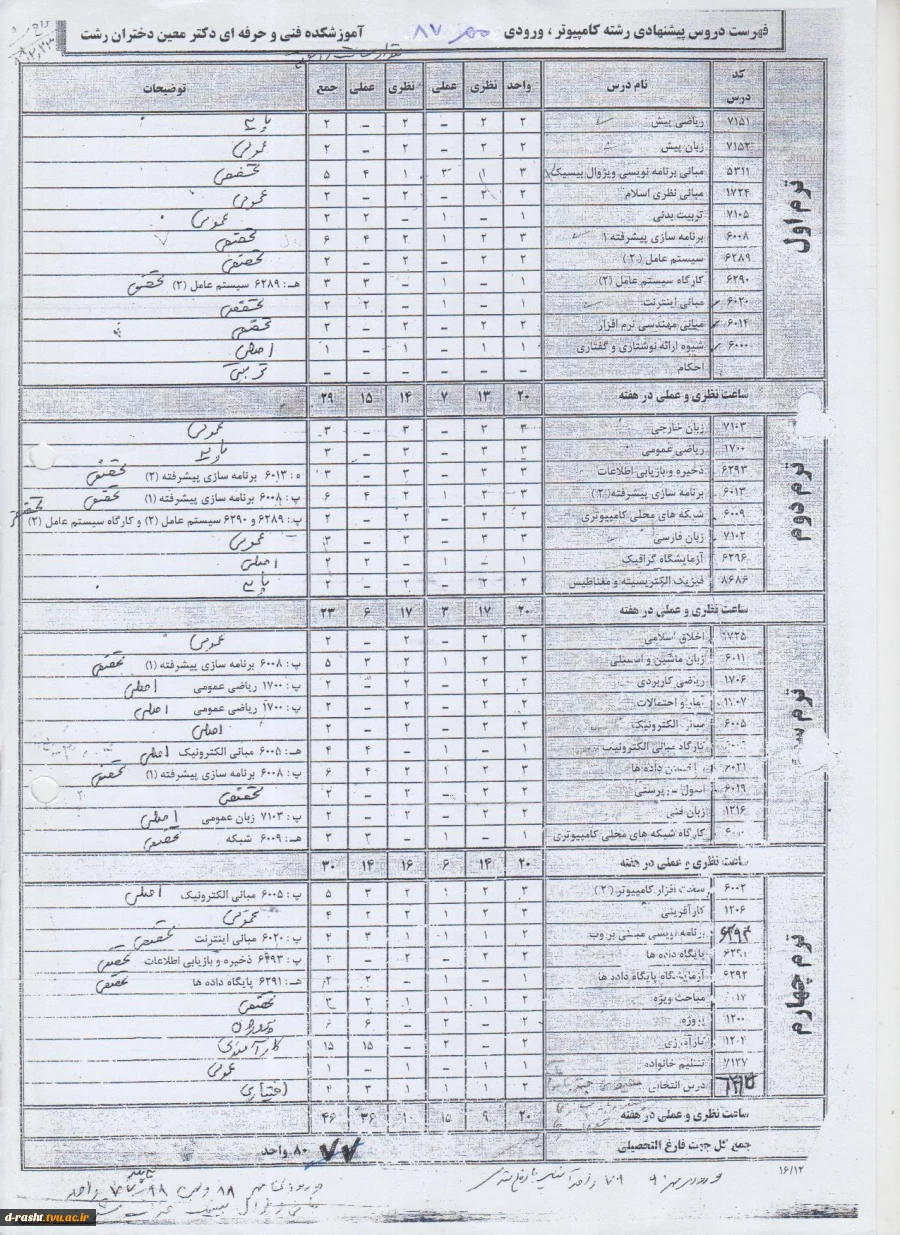 فهرست دروس پیشنهادی رشته کامپیوتر ، ورودی مهر ۸۷ آموزشکده فنی و حرفه ای دکتر معین دختران رشت
کد درس نام درس واحد نظری عملی نظری عملی جمع توضیحات
ترم اول
۷۱۵۱ ریاضی پیش ۲ ۲ – ۲ – ۲
۷۱۵۲ زبان پیش ۲ ۲ – ۲ – ۲ عمومی
۵۳۱۱ مبانی برنامه نویسی ویژوال بیسیک ۳ ۱ ۴ ۵ تخصصی
۱۷۲۴ مبانی نظری اسلام ۲ ۲ – ۲ – ۲ عمومی
۷۱۰۵ تربیت بدنی ۱ – ۱ – ۲ ۲ عمومی
۶۰۰۸ برنامه سازی پیشرفته ۱ ۳ ۲ ۱ ۲ ۴ ۶ تخصصی
۶۲۸۹ سیستم عامل (۲) ۲ ۲ – ۲ – ۲ تخصصی
۶۲۹۰ کارگاه سیستم عامل (۲) ۱ – ۱ – ۳ ۳ هـ : ۶۲۸۹ سیستم عامل (۲) تخصصی
۶۰۲۰ مبانی اینترنت ۱ – ۱ – ۲ ۲ تخصصی
۶۰۱۴ مبانی مهندسی نرم افزار ۲ ۲ – ۲ – ۲ تخصصی
۶۰۰۰ شیوه ارائه نوشتاری و گفتاری ۱ ۱ – ۱ – ۱ اصلی
احکام – – – – – –
ساعت نظری و عملی در هفته ۲۰ ۱۳ ۷ ۱۴ ۱۵ ۲۹
ترم دوم
۷۱۰۳ زبان خارجی ۳ ۲ – ۳ – ۳ عمومی
۱۷۰۰ ریاضی عمومی ۳ ۳ – ۳ – ۳
۶۲۹۳ ذخیره و بازیابی اطلاعات ۳ ۳ – ۳ – ۳ ه : ۶۰۱۳ برنامه سازی پیشرفته (۲) تخصصی
۶۰۱۳ برنامه سازی پیشرفته (۲) ۳ ۲ ۱ ۲ ۴ ۶ پ : ۶۰۰۸ برنامه سازی پیشرفته (۱) تخصصی
۶۰۰۹ شبکه های محلی کامپیوتری ۲ ۲ – ۲ – ۲ پ : ۶۲۸۹ و ۶۲۹۰ سیستم عامل (۲) و کارگاه سیستم عامل (۲) تخصصی
۷۱۰۲ زبان فارسی ۳ ۳ – ۳ – ۳ عمومی
۶۲۹۶ آزمایشگاه گرافیک ۱ – ۱ – ۲ ۲ اصلی
۸۶۸۶ فیزیک الکتریسیته و مغناطیس ۲ ۲ – ۲ – ۲
ساعت نظری و عملی در هفته ۲۰ ۱۷ ۳ ۱۷ ۶ ۲۳
اخلاق اسلامی ۲ ۲ – ۲ – ۲ عمومی
۶۰۱۱ زبان ماشین و اسمبلی ۳ ۲ ۱ ۲ ۳ ۵ پ : ۶۰۰۸ برنامه سازی پیشرفته (۱) تخصصی
۱۷۰۶ ریاضی کاربردی ۲ ۲ – ۲ – ۲ پ : ۱۷۰۰ ریاضی عمومی اصلی
آمار و احتمالات ۲ ۲ – ۲ – ۲ پ : ۱۷۰۰ ریاضی عمومی اصلی
۶۰۰۵ مبانی الکترونیک ۲ ۲ – ۲ – ۲ اصلی
کارگاه مبانی الکترونیک ۱ – ۱ – ۴ ۴ هـ : ۶۰۰۵ مبانی الکترونیک اصلی
۶۰۲۱ داده ها ۳ ۲ ۱ ۲ ۴ ۶ پ : ۶۰۰۸ برنامه سازی پیشرفته (۱) تخصصی
۶۰۱۹ اصول پرستی ۲ ۲ – ۲ – ۲ تخصصی
۱۲۱۶ زبان فنی ۲ ۲ – ۲ – ۲ پ : ۷۱۰۳ زبان عمومی اصلی
کارگاه شبکه های محلی کامپیوتری ۱ – ۱ – ۳ ۳ هـ : ۶۰۰۹ شبکه تخصصی
ساعت نظری و عملی در هفته ۲۰ ۱۴ ۶ ۱۶ ۱۴ ۳۰
ترم چهارم
۶۰۰۲ سخت افزار کامپیوتر (۲) ۳ ۲ ۱ ۲ ۳ ۵ پ : ۶۰۰۵ مبانی الکترونیک اصلی
۱۲۰۶ کارآفرینی ۳ ۲ ۱ ۲ ۲ ۴ عمومی
برنامه نویسی مبتنی بر وب ۲ ۱ ۱ ۱ ۳ ۴ پ : ۶۰۲۰ مبانی اینترنت تخصصی
پایگاه داده ها ۲ ۲ – ۲ – ۲ پ : ۶۲۹۳ ذخیره و بازیابی اطلاعات تخصصی
۶۲۹۲ آزمایشگاه پایگاه داده ها ۱ – ۱ – ۲ ۲ هـ : ۶۲۹۱ پایگاه داده ها تخصصی
مباحث ویژه ۲ ۱ ۱ ۱ ۲ ۳ تخصصی
۱۲۰۰ پروژه ۲ – ۲ – ۶ ۶ پروژه
۱۲۰۴ کارآموزی ۲ – ۲ – ۱۵ ۱۵ کارآموزی
۷۱۲۷ تنظیم خانواده ۱ ۱ – ۱ – ۱ عمومی
درس انتخابی ۲ ۱ ۱ ۱ ۳ ۴ اختیاری
ساعت نظری و عملی در هفته ۲۰ ۹ ۱۵ ۱۰ ۳۶ ۴۶
جمع کل جهت فارغ التحصیلی ۸۰ واحد ۷۷
۱۶/۱۲
d-rasht.tvu.ac.ir